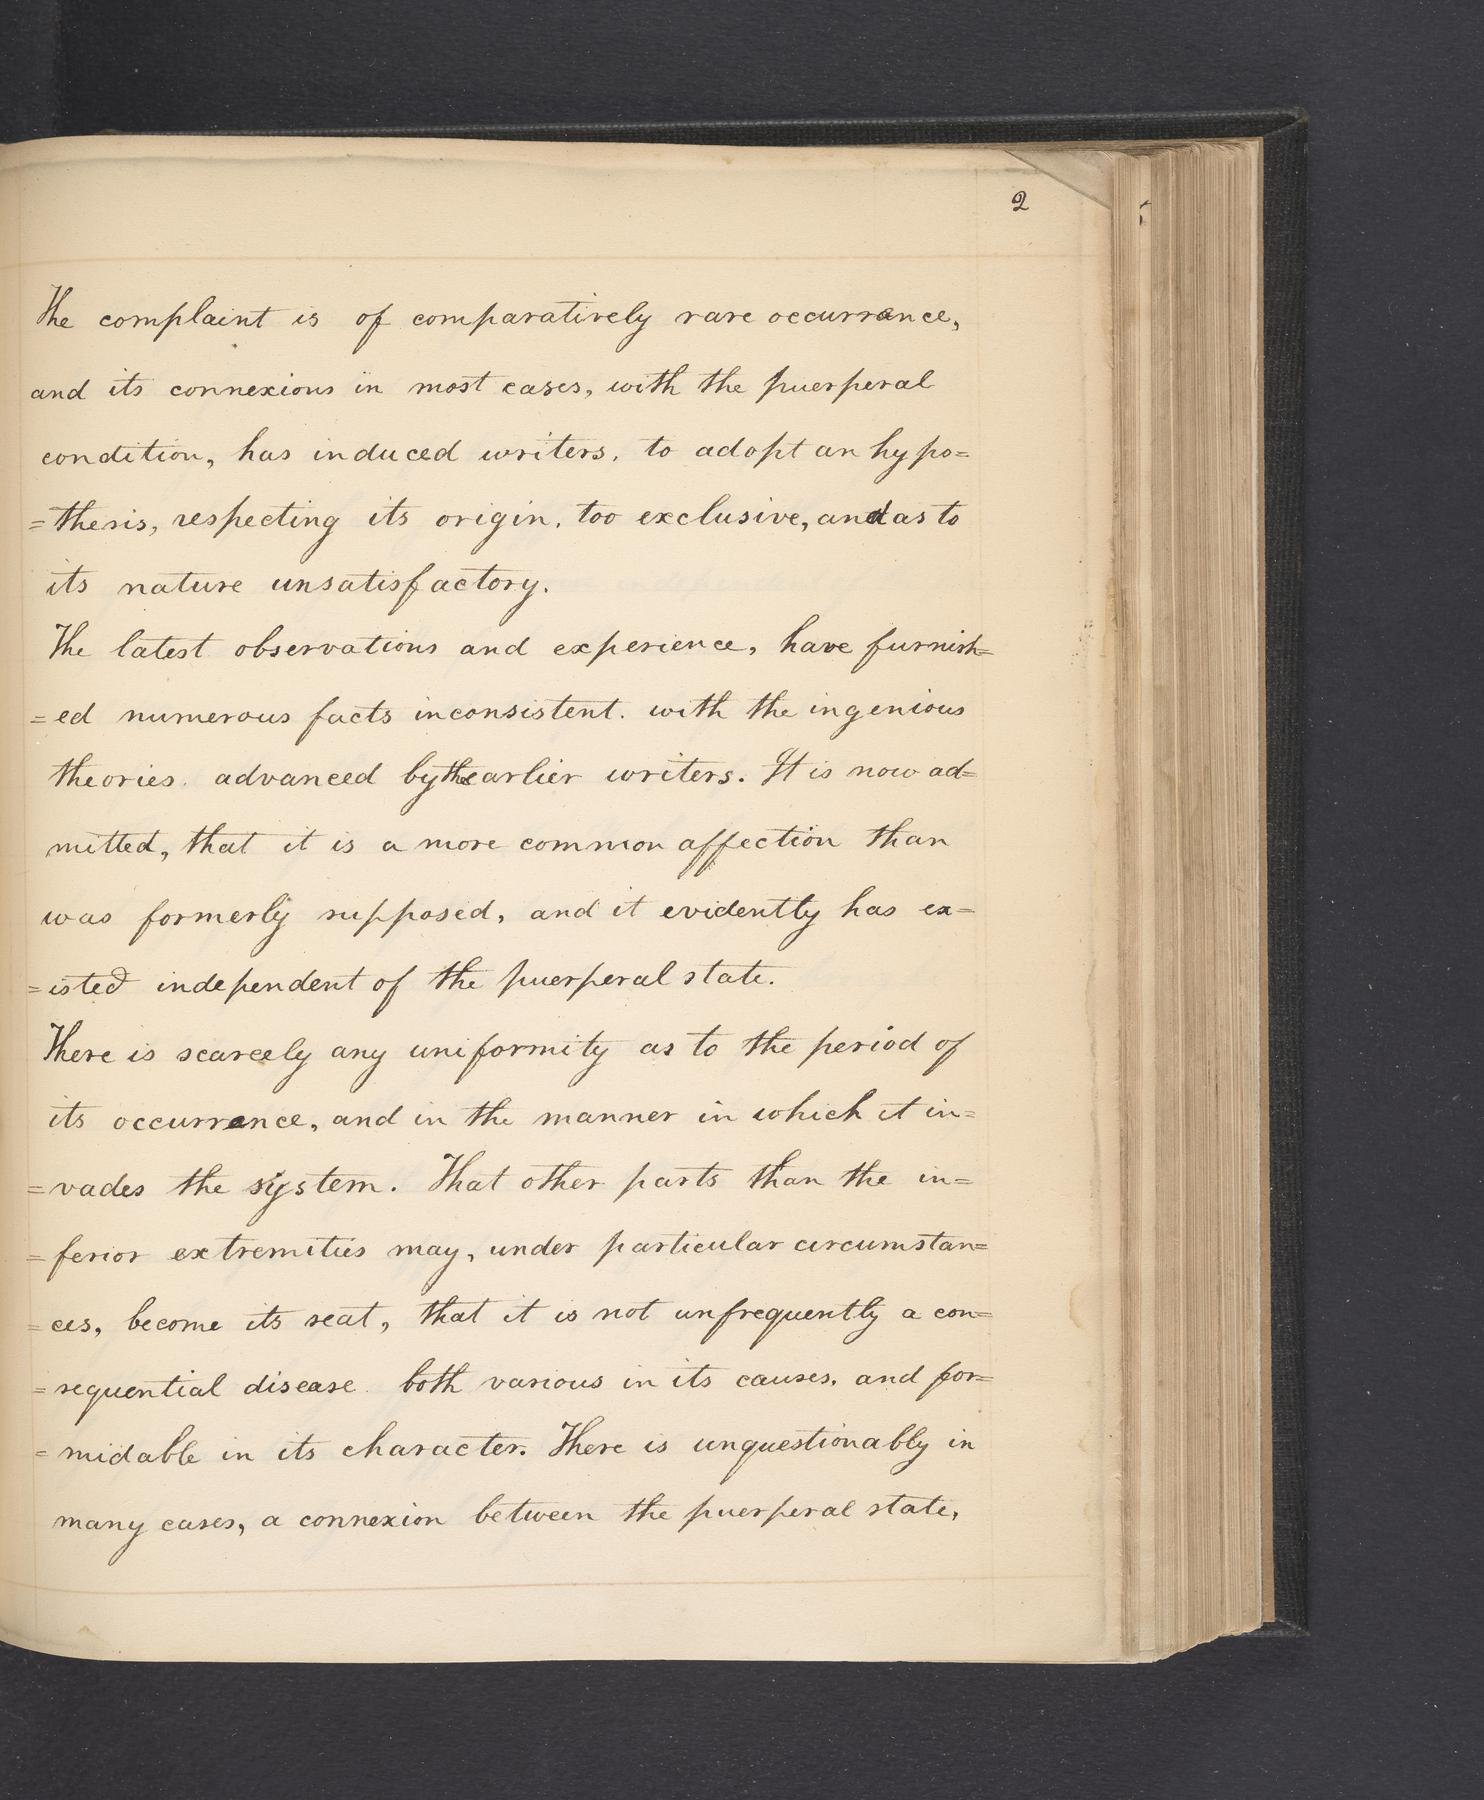 2
The complaint is of comparatively rare occurrance,
and its connexions in most cases, with the puerperal
condition, has induced writers, to adopt an hypo=
=thesis, respecting its origin, too exclusive, and as to
its nature unsatisfactory.
The latest observations and experience, have furnish=
=ed numerous facts inconsistent. with the ingenious
theories. advanced by the earlier writers. It is now ad=
mitted, that it is a more common affection than
was formerly supposed, and it evidently has ex=
=isted independent of the puerperal state.
There is scarcely any uniformity as to the period of
its occurrence, and in the manner in which it in=
=vades the system. That other parts than the in=
=ferior extremities may, under particular circumstan=
=ces, become its seat, that it is not unfrequently a con=
=sequential disease. both various in its causes, and for=
=midable in its character. There is unquestionably in
many cases, a connexion between the puerperal state,